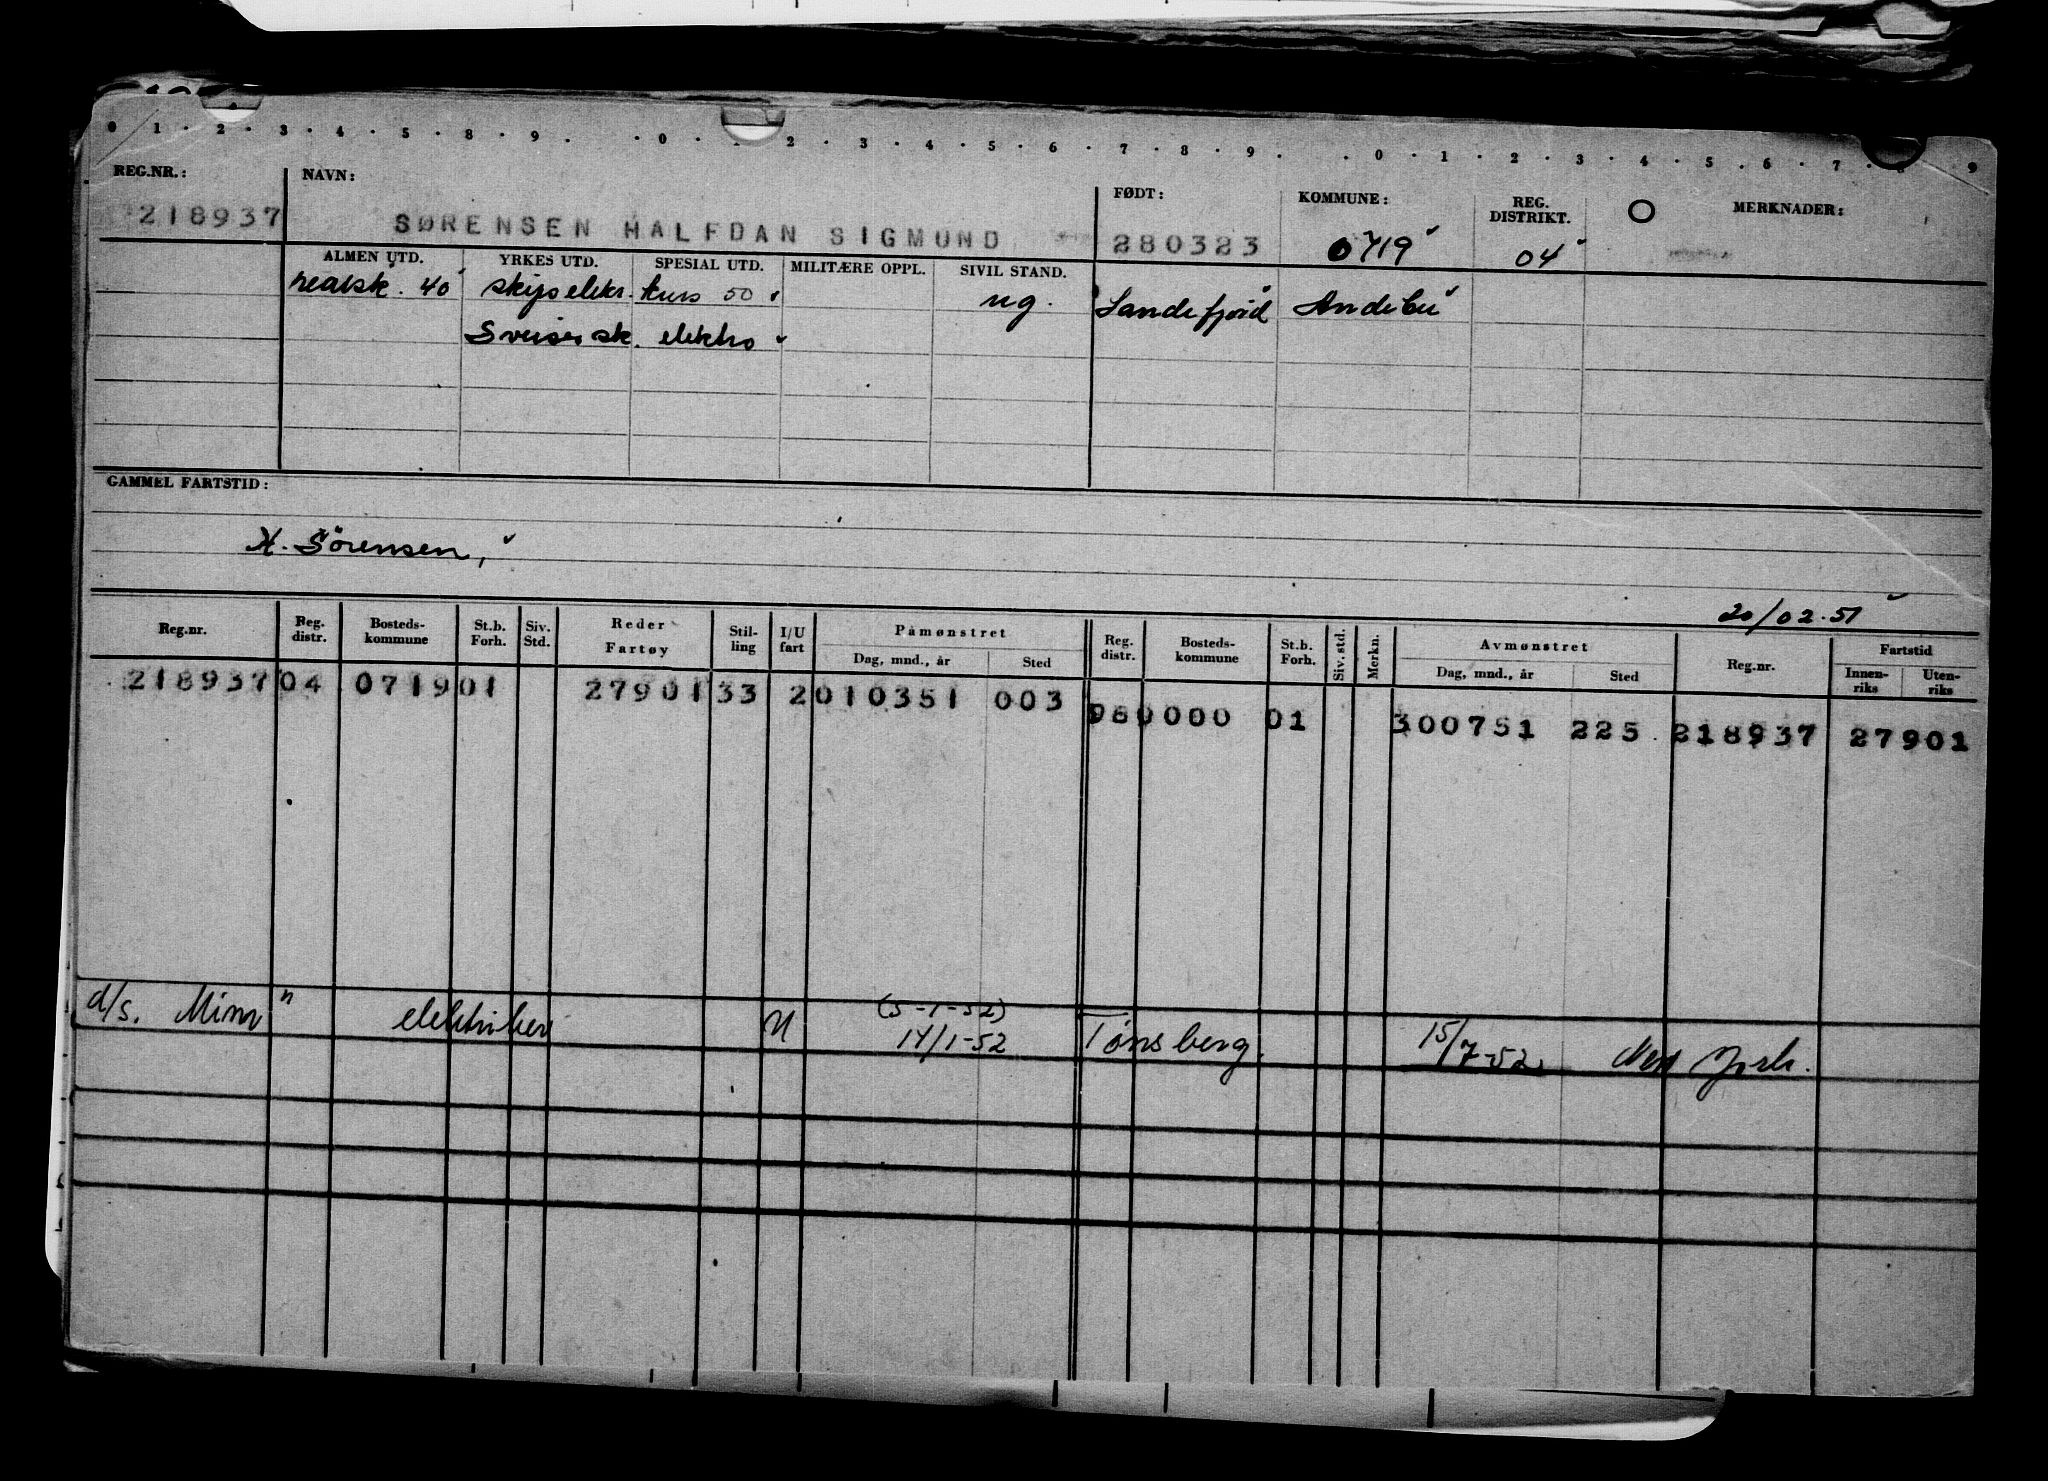 0 1 . 2 . 3 . 4 . 5 . 8 . 9 . . 0 . . 2 . 3 . 4 . 5 . 6 . 7 . 8 . 9 . . 0 . 1 . 2 . 3 . 4 . 5 . 6 . 7 . 8 9
REG.NR.: NAVN: FØDT: KOMMUNE: REG. DISTRIKT. O MERKNADER:
218937 SØRENSEN HALFDAN SIGMUND 280323 0719 04
ALMEN UTD. YRKES UTD. SPESIAL UTD. MILITÆRE OPPL. SIVIL STAND.
realsk. 40 skipselektr. kurs 50 ug. Sandefjord Andebu
Sveisesk. elektro
GAMMEL FARTSTID:
H. Sörensen,
20/02.51
Reg.nr. Reg. distr. Bosteds-kommune St.b. Forh. Siv. Std. Reder Fartøy Stil-ling I/U fart Påmønstret Dag, mnd., år Sted Reg. distr. Bosteds-kommune St.b. Forh. Siv. std. Merkn. Avmønstret Dag, mnd., år Sted Reg.nr. Fartstid Innen-riks Uten-riks
218937 04 0719 01 27901 33 2 010351 003 980000 01 300751 225 218937 27901
d/s. Mim" elektriker U (5-1-52)
14/1-52 Tønsberg. 15/7-52 New York.